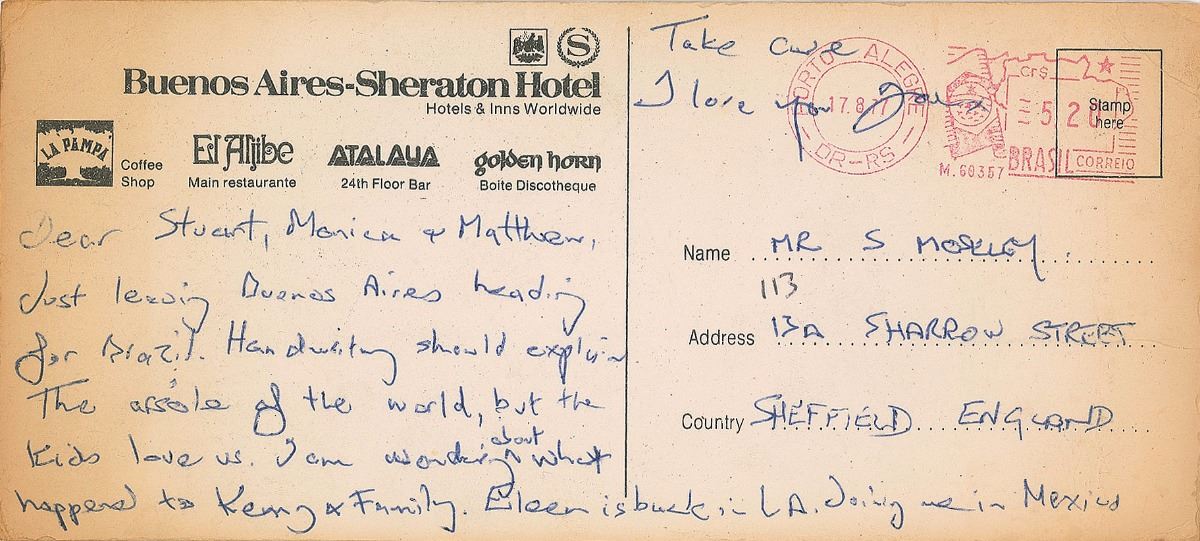 Buenos Aires-Sheraton Hotel
Hotels & Inns Worldwide
LA PAMPA
Coffee
Shop
El Aljibe
Main restaurante
ATALAYA
24th Floor Bar
golden horn
Boite Discotheque
Dear Stuart, Monica & Matthew,
Just leaving Buenos Aires heading
for Brazil. Handwriting should explain
The arsole of the world, but the
Kids love us. I am wondering about what
happened to Kenny & Family. Eileen is back in LA. doing me in Mexico
Take care
I love you
PORTO ALEGRE
17.8.77
DR-RS
Cr$
520
BRASIL CORREIO
M.60357
Stamp
here
Name MR S MOSLEY.
113
Address 13A SHARROW STREET
Country SHEFFIELD ENGLAND